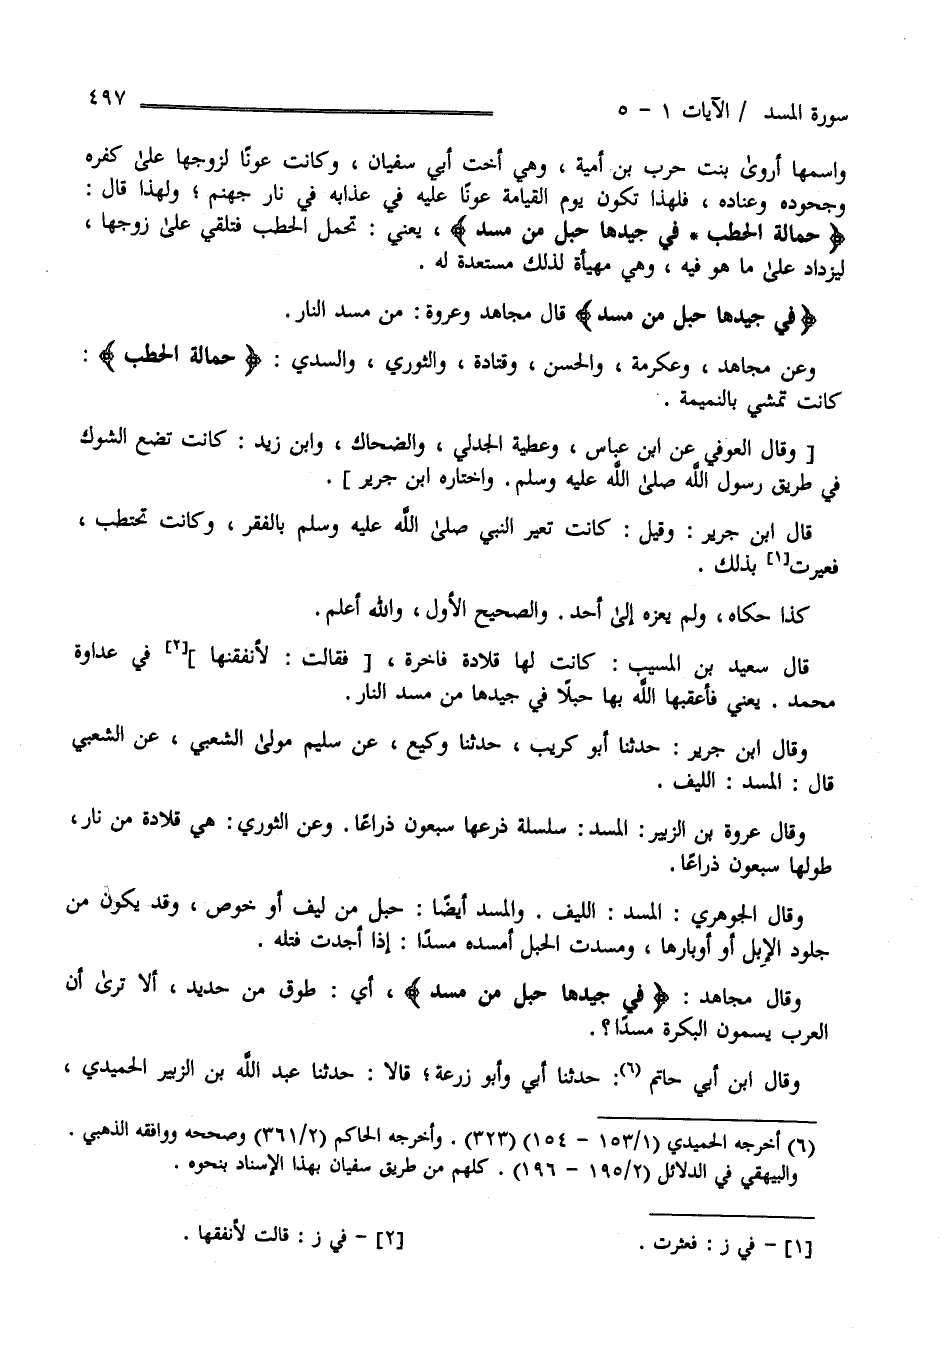 سورة المسد / الآيات ١ - ٥ ٤٩٧
واسمها أروىٰ بنت حرب بن أمية ، وهي أخت أبي سفيان ، وكانت عونًا لزوجها علىٰ كفره
وجحوده وعناده ، فلهذا تكون يوم القيامة عونًا عليه في عذابه في نار جهنم ؛ ولهذا قال :
﴿ حمالة الحطب * في جيدها حبل من مسد ﴾ ، يعني : تحمل الحطب فتلقي علىٰ زوجها ،
ليزداد علىٰ ما هو فيه ، وهي مهيأة لذلك مستعدة له .
﴿في جيدها حبل من مسد﴾ قال مجاهد وعروة: من مسد النار.
وعن مجاهد ، وعكرمة ، والحسن ، وقتادة ، والثوري ، والسدي : ﴿ حمالة الحطب ﴾ :
كانت تمشي بالنميمة .
[ وقال العوفي عن ابن عباس ، وعطية الجدلي ، والضحاك ، وابن زيد : كانت تضع الشوك
في طريق رسول اللَّه صلىٰ اللَّه عليه وسلم. واختاره ابن جرير ] .
قال ابن جرير : وقيل : كانت تعير النبي صلىٰ اللَّه عليه وسلم بالفقر ، وكانت تحتطب ،
فعيرت[١] بذلك .
كذا حكاه، ولم يعزه إلىٰ أحد. والصحيح الأول ، والله أعلم.
قال سعيد بن المسيب : كانت لها قلادة فاخرة ، [ فقالت : لأنفقنها ][٢] في عداوة
محمد . يعني فأعقبها اللَّه بها حبلًا في جيدها من مسد النار.
وقال ابن جرير : حدثنا أبو كريب ، حدثنا وكيع ، عن سليم مولىٰ الشعبي ، عن الشعبي
قال : المسد : الليف .
وقال عروة بن الزبير: المسد: سلسلة ذرعها سبعون ذراعًا. وعن الثوري: هي قلادة من نار،
طولها سبعون ذراعًا.
وقال الجوهري : المسد : الليف . والمسد أيضًا : حبل من ليف أو خوص ، وقد يكون من
جلود الإبل أو أوبارها ، ومسدت الحبل أمسده مسدًا : إذا أجدت فتله .
وقال مجاهد : ﴿ في جيدها حبل من مسد ﴾ ، أي : طوق من حديد ، ألا ترىٰ أن
العرب يسمون البكرة مسدًا؟.
وقال ابن أبي حاتم (٦): حدثنا أبي وأبو زرعة؛ قالا : حدثنا عبد اللَّه بن الزبير الحميدي ،
(٦) أخرجه الحميدي (١٥٣/١ - ١٥٤) (٣٢٣) . وأخرجه الحاكم (٣٦١/٢) وصححه ووافقه الذهبي .
والبيهقي في الدلائل (١٩٥/٢ - ١٩٦) . كلهم من طريق سفيان بهذا الإسناد بنحوه .
[١] - في ز : فعثرت . [٢] - في ز : قالت لأنفقها .